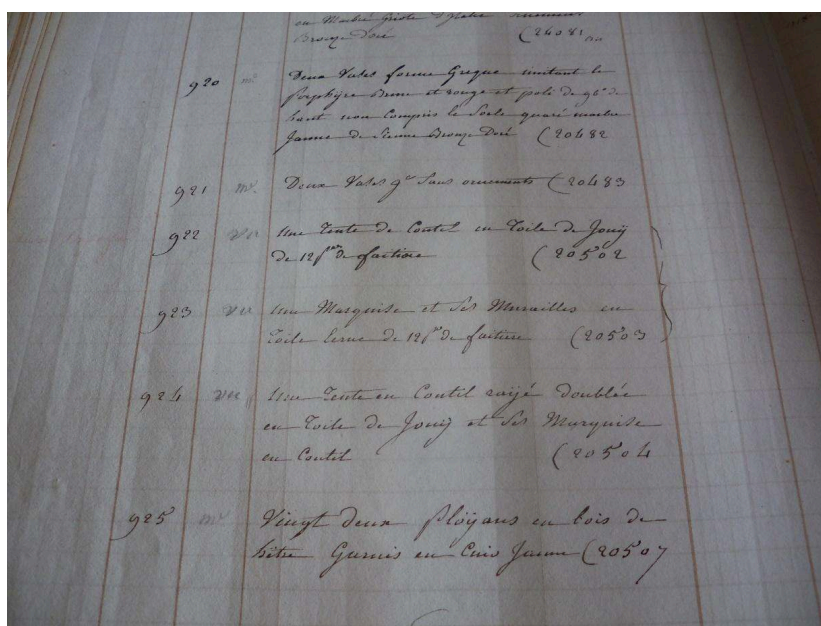 en Marbre Griote d'Italie
Bronze Doré (20481
920 Deux Vases forme Greque imitant le
Porphyre Brun et rouge et poli de 96c de
haut non Compris le Socle quaré marbre
Jaune de Sienne Bronze Doré (20482
921 Deux Vases gds Sans ornements (20483
922 vu Une Tente de Coutil en Toile de Jouÿ
de 12 pds de faitiere (20502
923 vu Une Marquise et Ses Murailles en
Toile Ecrue de 12 pds de faitiere (20503
924 vu Une Tente en Coutil raÿé doublée
en Toile de Jouÿ et Ses Marquise
en Coutil (20504
925 Vingt deux Ploÿans en bois de
hêtre Garnis en Cuir Jaune (20507